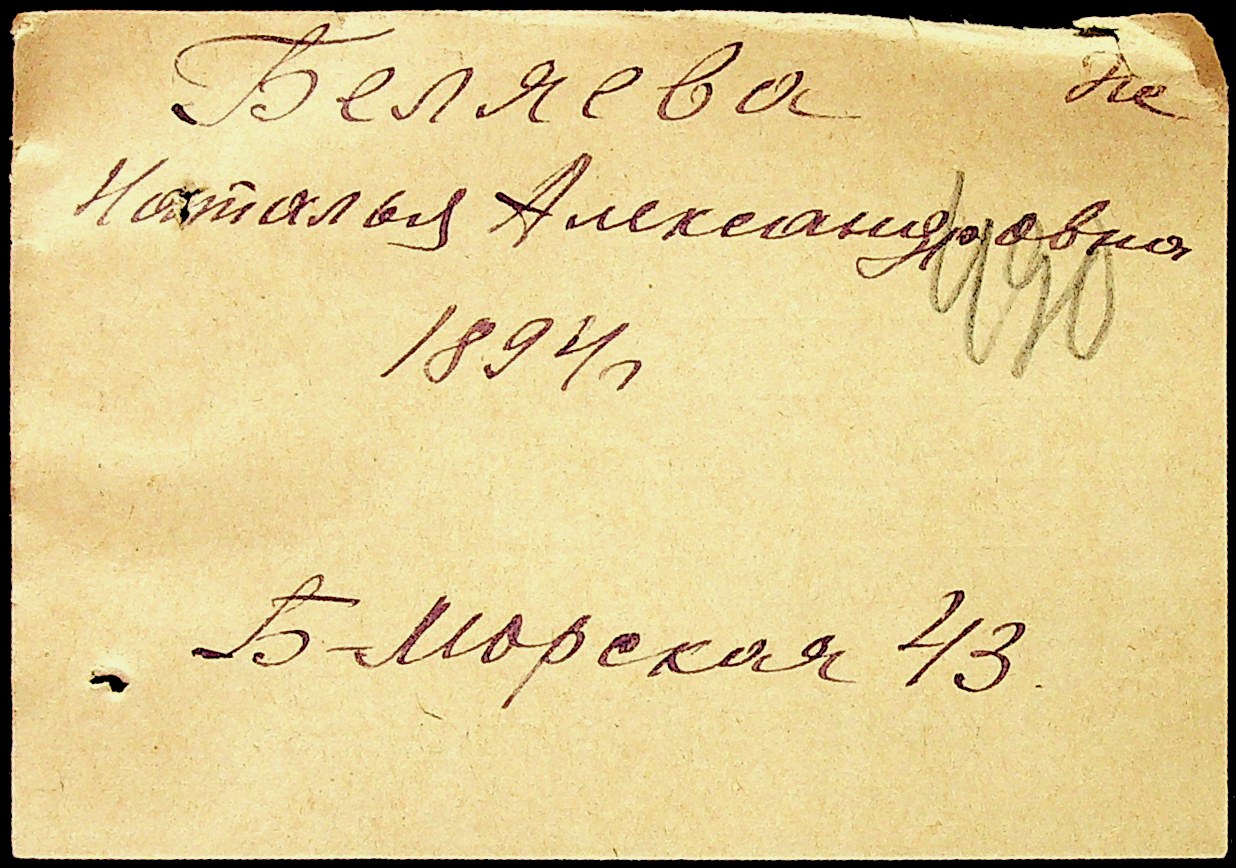 Беляева не
Наталья Александровна
1894г
Б-Морская 43.